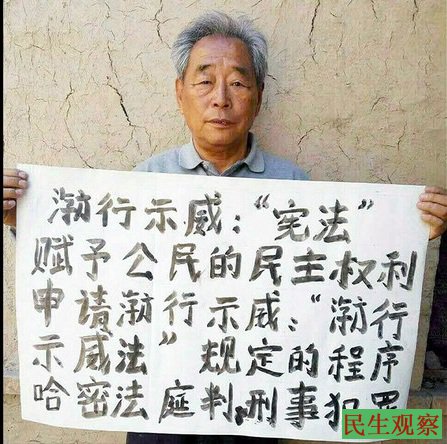 游行示威："宪法"
赋予公民的民主权利
申请游行示威："游行
示威法"规定的程序
哈密法庭判刑事犯罪
民生观察